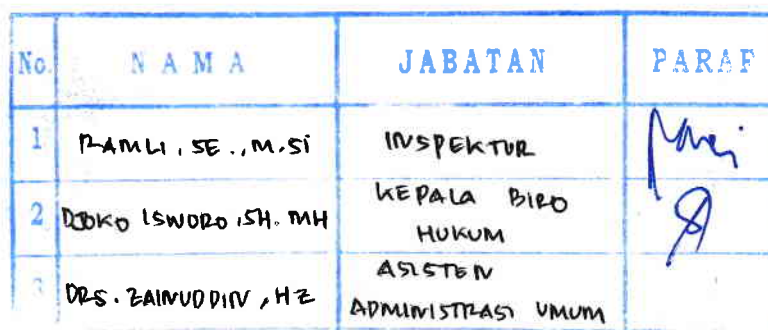 No. N A M A JABATAN PARAF
1 RAMLI, SE., M.Si INSPEKTUR
2 DJOKO ISWORO, SH. MH KEPALA BIRO
HUKUM
3 DRS. ZAINUDDIN, HZ ASISTEN
ADMINISTRASI UMUM